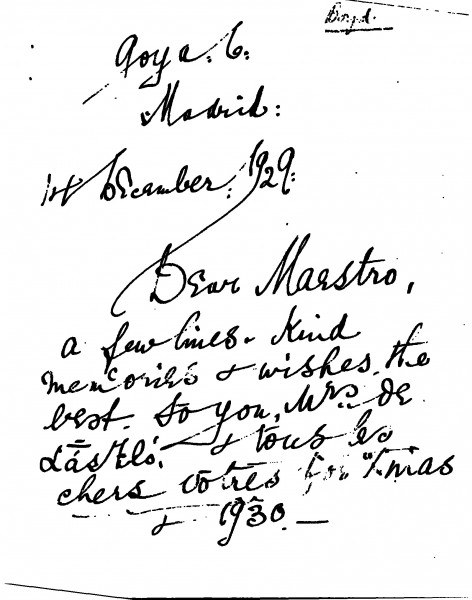 Boyd.
Goya. 6.
Madrid:
1st December. 1929.
Dear Maestro,
a few lines. Kind
memories & wishes. the
best. to you, Mrs. de
László. & tous les
chers vôtres for Xmas
& 1930. —